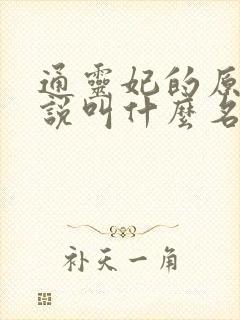 通靈妃的原
說叫什麼名
补天一角